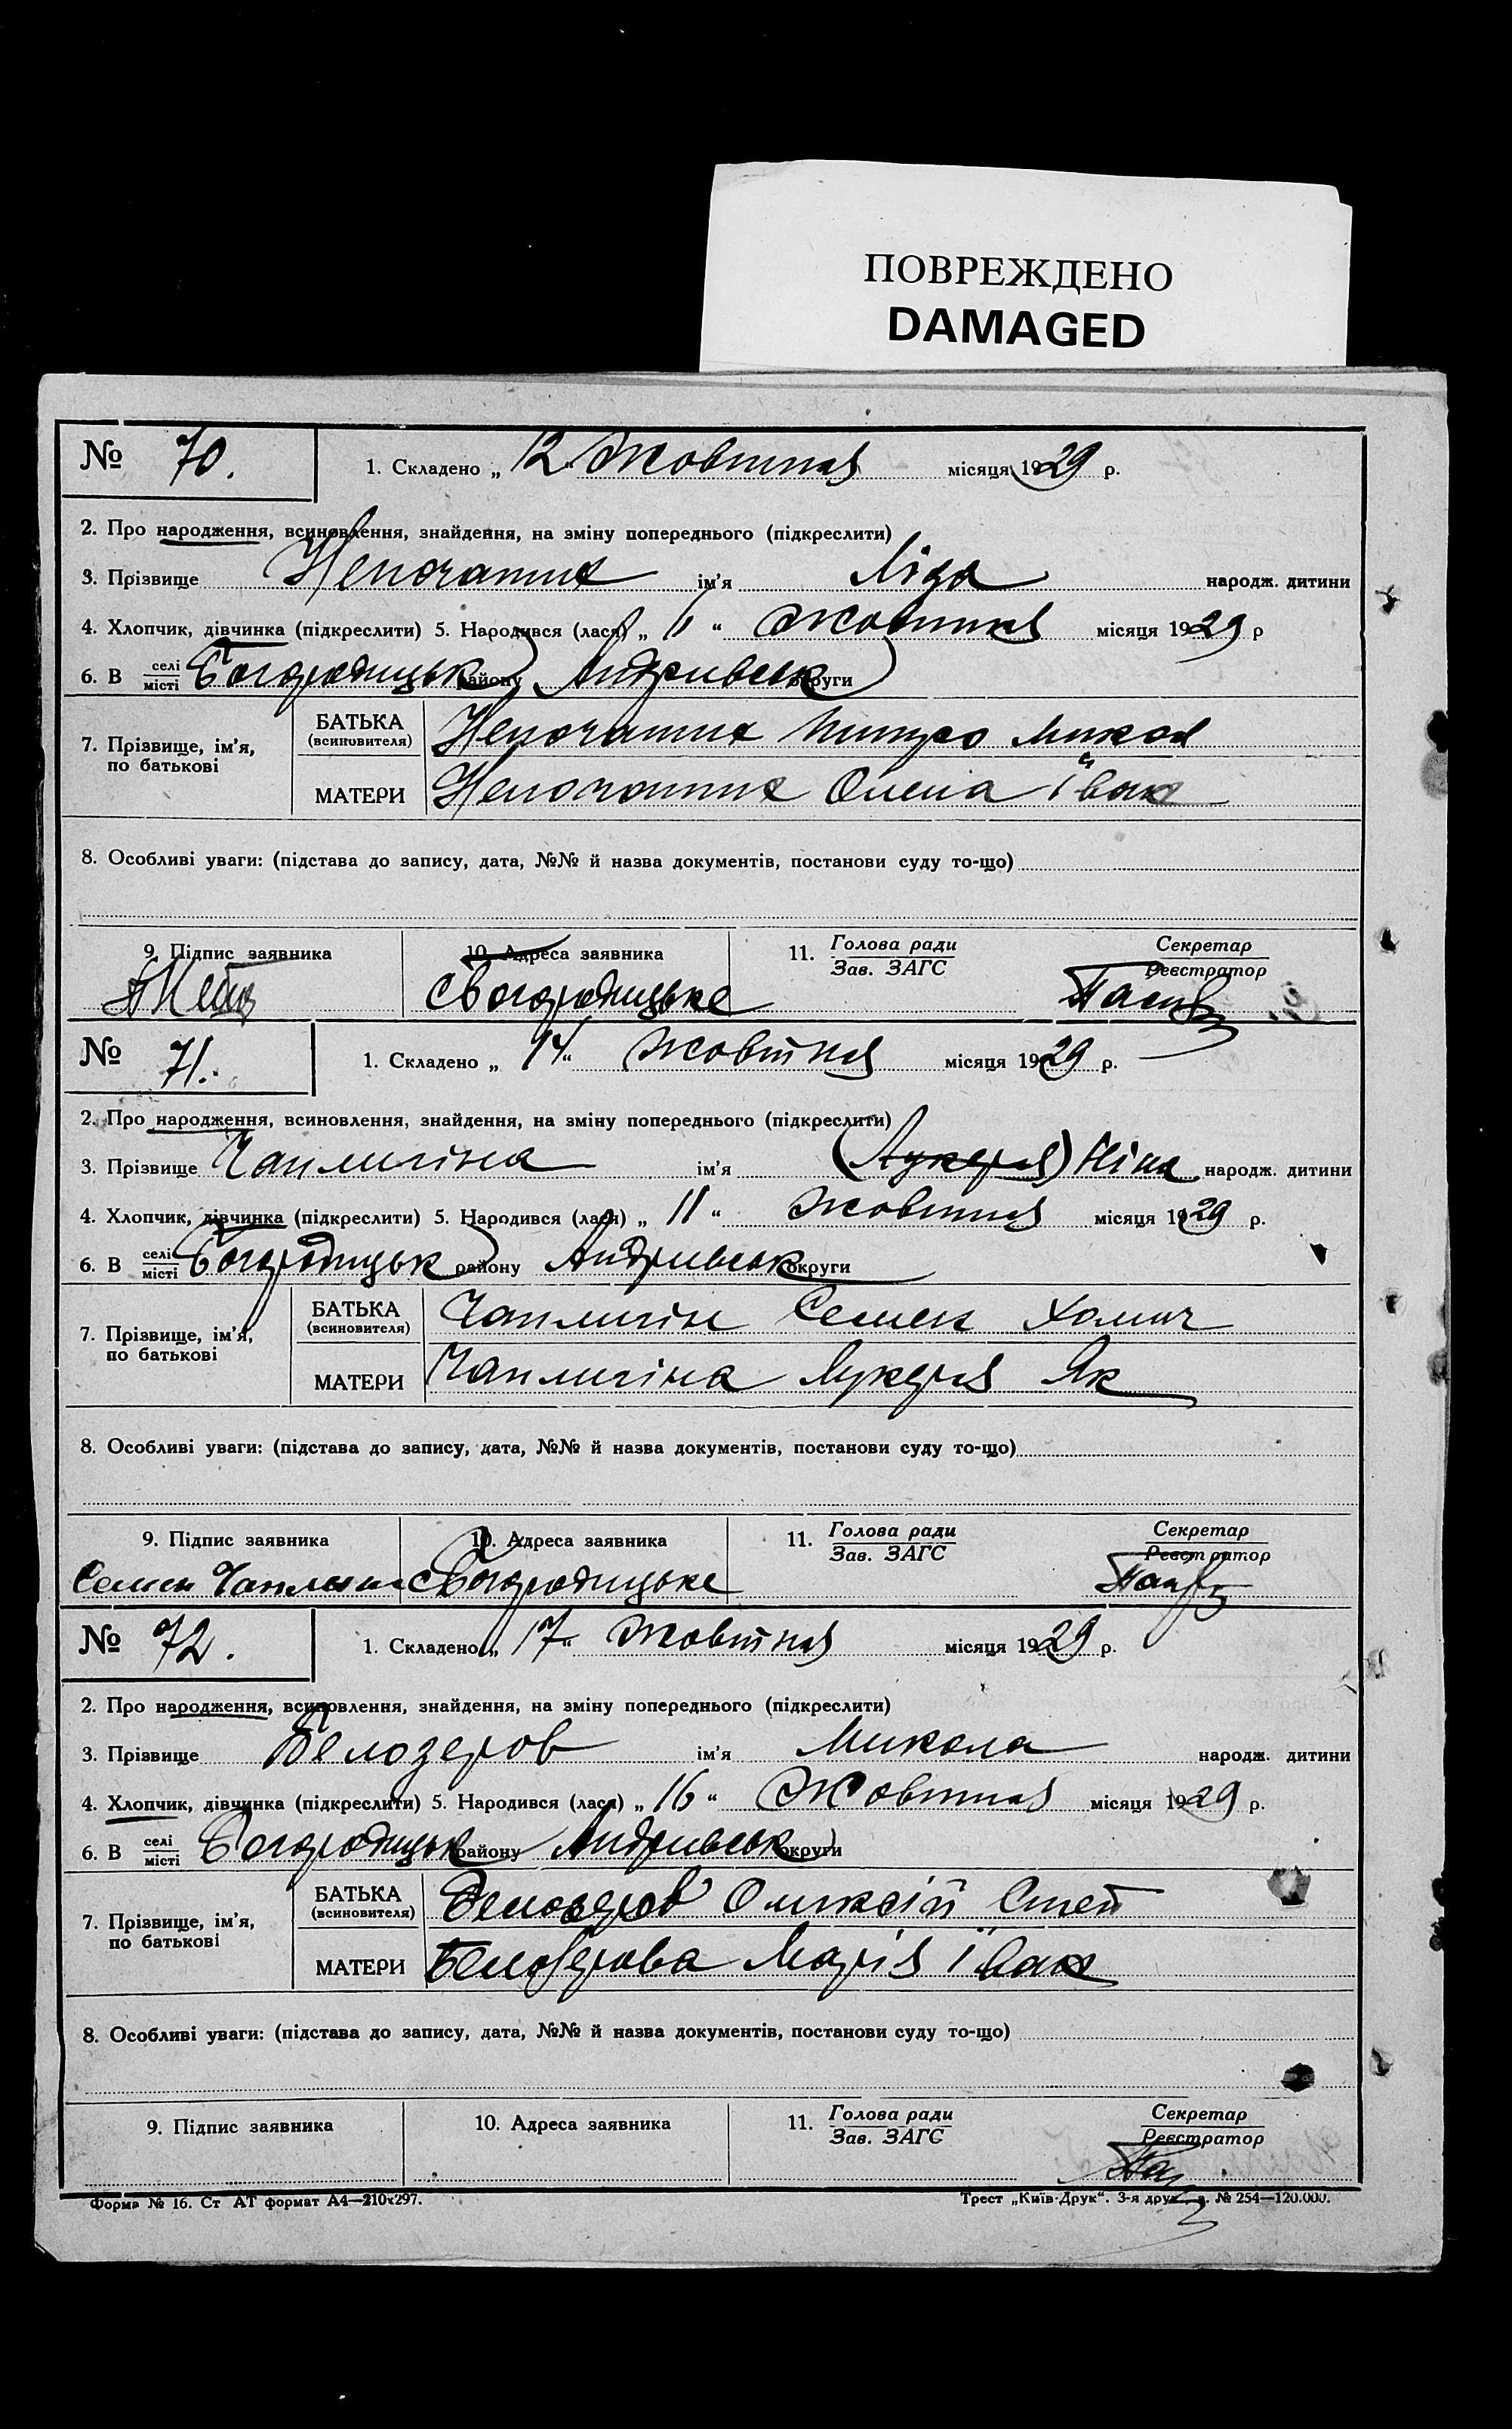 ПОВРЕЖДЕНО
DAMAGED
№ 70. 1. Складено „ 12 “ Жовтня місяця 1929 р.
2. Про народження, всиновлення, знайдення, на зміну попереднього (підкреслити)
3. Прізвище Непочатих ім'я Ліда народж. дитини
4. Хлопчик, дівчинка (підкреслити) 5. Народився (лася) „ 11 “ Жовтня місяця 1929 р
6. В селі місті Богородицьк району Андривськ округи
7. Прізвище, ім'я, по батькові
БАТЬКА (всиновителя) Непочатих Микол
МАТЕРИ Непочатих Олена Іван
8. Особливі уваги: (підстава до запису, дата, №№ й назва документів, постанови суду то-що)
9. Підпис заявника 10. Адреса заявника 11. Голова ради Зав. ЗАГС Секретар Реєстратор
с Богородицьке
№ 71. 1. Складено „ 14 “ Жовтня місяця 1929 р.
2. Про народження, всиновлення, знайдення, на зміну попереднього (підкреслити)
3. Прізвище Чаплигіна ім'я (Лукеря) Ніна народж. дитини
4. Хлопчик, дівчинка (підкреслити) 5. Народився (лася) „ 11 “ Жовтня місяця 1929 р.
6. В селі місті Богородицьк району Андривськ округи
7. Прізвище, ім'я, по батькові
БАТЬКА (всиновителя) Чаплигін Семен Хомич
МАТЕРИ Чаплигіна Лукеря Як
8. Особливі уваги: (підстава до запису, дата, №№ й назва документів, постанови суду то-що)
9. Підпис заявника 10. Адреса заявника 11. Голова ради Зав. ЗАГС Секретар Реєстратор
Семен с Богородицьке
№ 72. 1. Складено „ 17 “ Жовтня місяця 1929 р.
2. Про народження, всиновлення, знайдення, на зміну попереднього (підкреслити)
3. Прізвище Белозеров ім'я Микола народж. дитини
4. Хлопчик, дівчинка (підкреслити) 5. Народився (лася) „ 16 “ Жовтня місяця 1929 р.
6. В селі місті Богородицьк району Андривськ округи
7. Прізвище, ім'я, по батькові
БАТЬКА (всиновителя) Белозеров Оликсій Степ
МАТЕРИ Белозерова Марія Іван
8. Особливі уваги: (підстава до запису, дата, №№ й назва документів, постанови суду то-що)
9. Підпис заявника 10. Адреса заявника 11. Голова ради Зав. ЗАГС Секретар Реєстратор
Форма № 16. Ст АТ формат А4—210х297. Трест „Київ-Друк“. 3-я друк. з. № 254—120.000.